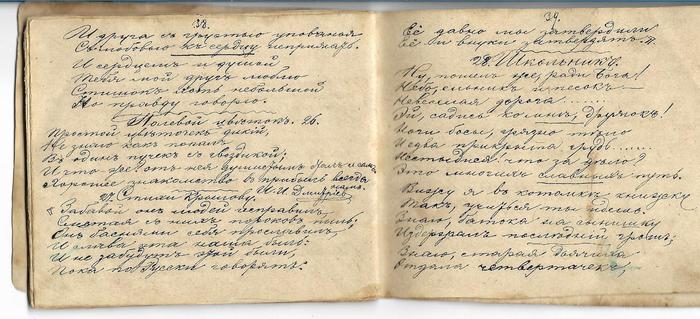 38.
И друга съ грустью уповчая
Съ любовью къ сердцу неприжаръ.
И сердцемъ и душой
Тебя мой другъ люблю
Стишокъ хоть небольшой
Но правду говорю.
Полевой цвѣтокъ. 26.
Простой цвѣточекъ дикій,
Не знаю какъ попалъ
Въ одинъ пучекъ съ гвоздикой;
И что же? отъ нея душистымъ самъ сталъ
Хорошее знакомство въ прибыль всегда намъ.
И. И. Дмитріевъ
27. Стихи Крылову.
Забавой онъ людей исправилъ,
Сметая съ нихъ пороковъ пыль;
Онъ баснями себя прославилъ,
И слава эта наша быль.
И не забудутъ этой были,
Пока по Русски говорятъ.
39.
Её давно мы затвердили
Её и внуки затвердятъ.
28. Школьникъ.
Ну, пошелъ же, ради Бога!
Небо, ельникъ и песокъ
Невеселая дорога......
Эй, садись ко мнѣ, дружокъ!
Ноги босы, грязно тѣло
И едва прикрыта грудь......
Не стыдися! что за дѣло?
Это многихъ славныхъ путь.
Вижу я въ котомкѣ книжку
Такъ, учиться ты идешь
Знаю батька на сынишку
Издержалъ послѣдній грошъ,
Знаю, старая дьячиха
Отдала четвертачекъ,